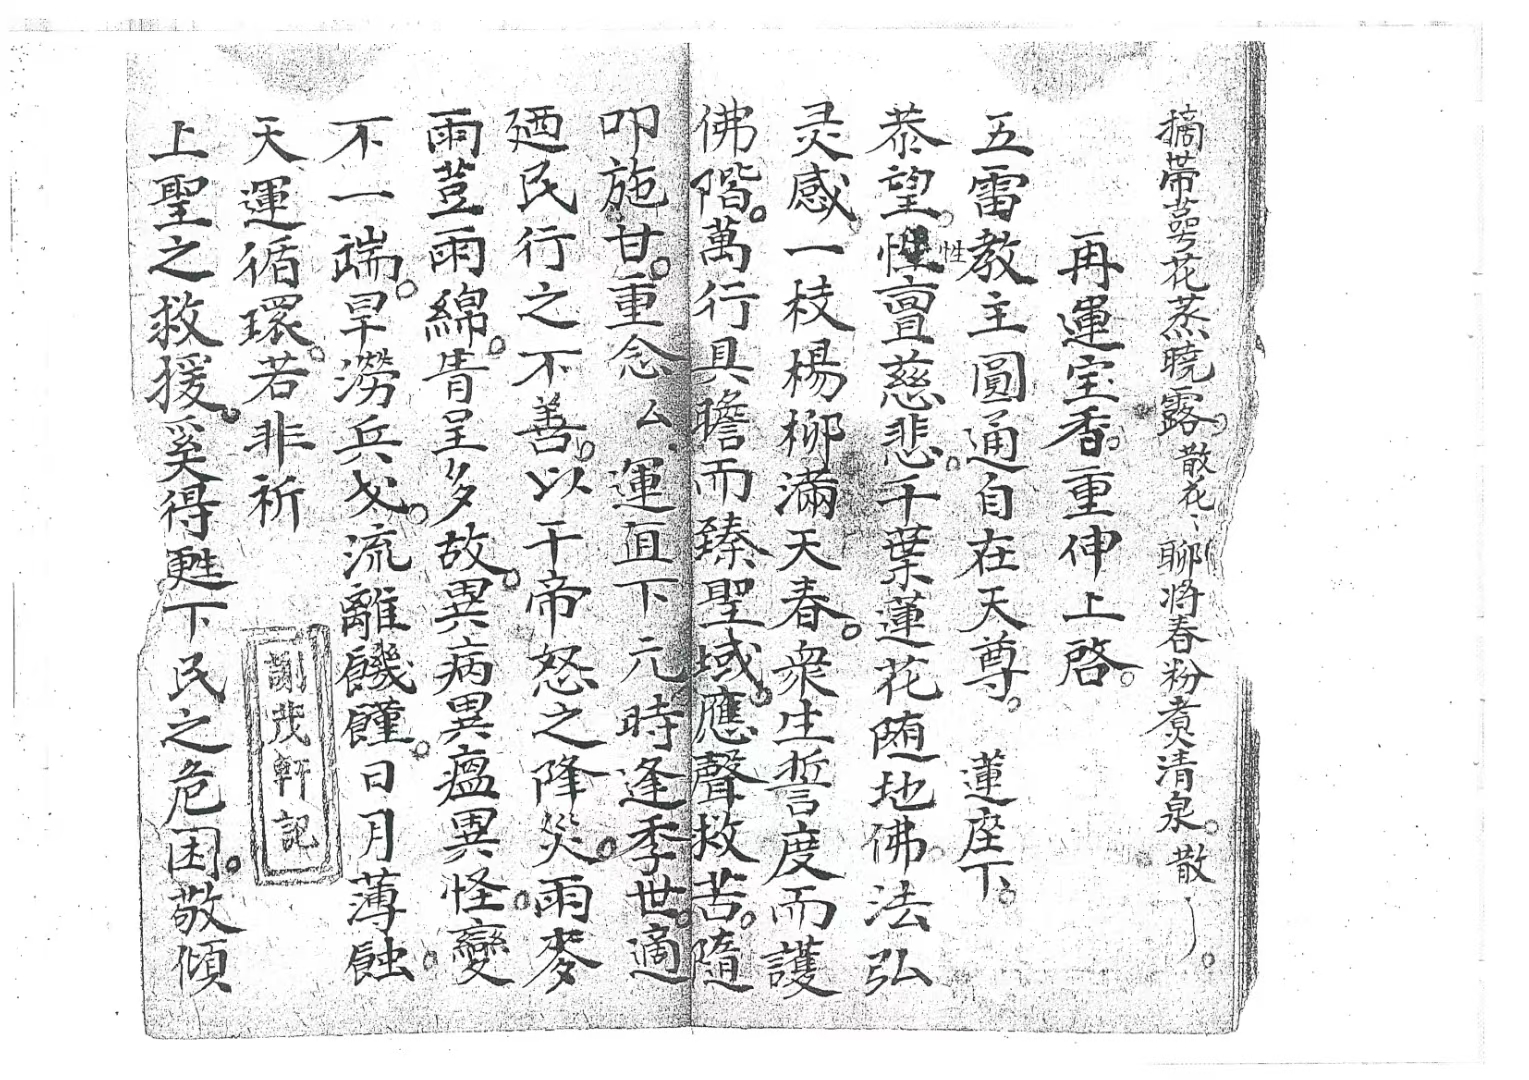 摘帶萼花蒸曉露。散花〻聊将春粉煑清泉。散
再運宝香。重伸上啓。
五雷教主圓通自在天尊。蓮座下。
恭望。性亶慈悲。千葉蓮花随地佛。法弘
性
灵感一枝楊柳滿天春。衆生誓度而護
佛階。萬行具瞻而臻聖域。應聲救苦。隨
叩施甘。重念厶、運直下元時逢季世。適
廼民行之不善。以干帝怒之降災。雨麥
雨荳雨綿。眚呈多故。異病異瘟異怪。變
不一端。旱澇兵戈。流離饑饉。日月薄蝕。
天運循環。若非祈
上聖之救援。奚得甦下民之危困。敬傾
謝茂軒記